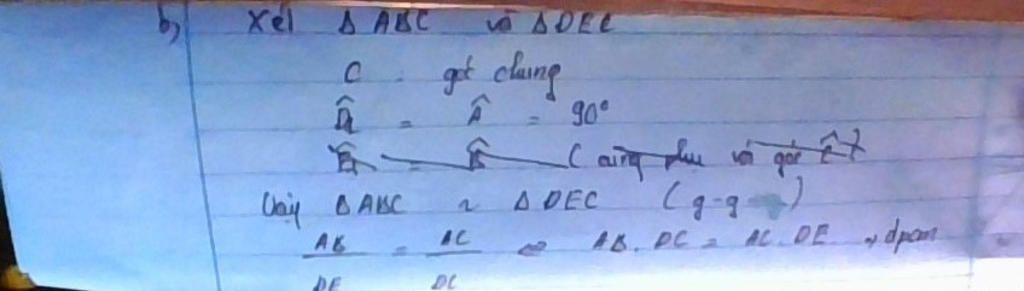 b, Xét Δ ABC và Δ DEC
C góc chung
D̂₁ = Â = 90°
Ê₁ = B̂ (cùng phụ với góc Ĉ)
Vậy Δ ABC ~ Δ DEC (g-g)
AB/DE = AC/DC ⇔ AB. DC = AC. DE → đpcm